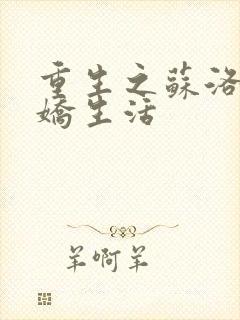 重生之蘇洛
嬌生活
羊啊羊